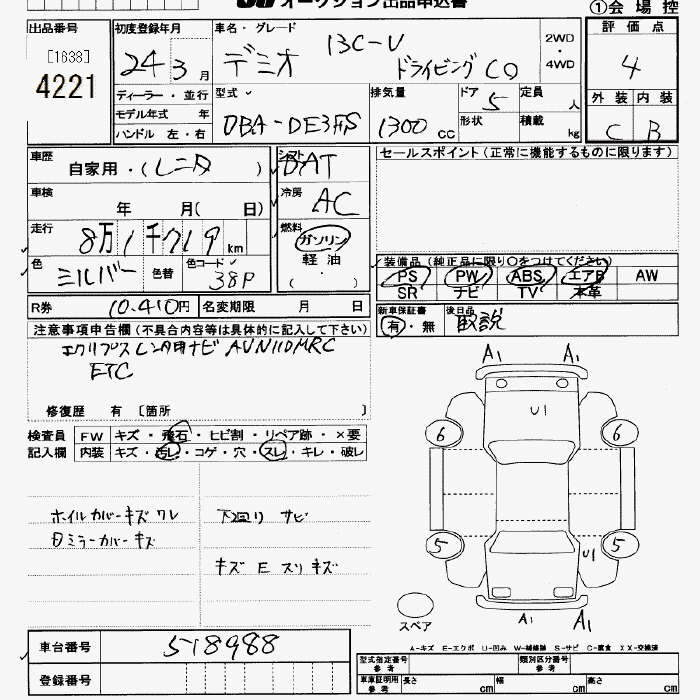 オークション出品申込書
①会場控
出品番号
[1638]
4221
初度登録年月
24 3 月
ディーラー・並行
モデル年式 年
ハンドル 左・右
車名・グレード
デミオ 13C-V
ドライビング
2WD
・
4WD
型式
DBA-DE3FS
排気量
1300 CC
ドア 5
形状
定員 人
積載 kg
評価点
4
外装 内装
C B
車歴
自家用・(レンタ )
シフト AT
車検
年 月( 日)
冷房 AC
走行
8万1千719 km
燃料
ガソリン
軽油
・( )
色
シルバー
色替
色コード
38P
R券 10,410円
名変期限 月 日
セールスポイント(正常に機能するものに限ります)
装備品(純正品に限り○をつけてください)
PS PW ABS エアB AW
SR ナビ TV 本革
新車保証書
有・無
後日品
取説
注意事項申告欄(不具合内容等は具体的に記入して下さい)
エクリプスレンタ用ナビ AVN110MRC
ETC
修復歴 有 [箇所 ]
検査員
記入欄
FW キズ・飛石・ヒビ割・リペア跡・×要
内装 キズ・汚レ・コゲ・穴・スレ・キレ・破レ
ホイルカバーキズ ワレ
下廻り サビ
ミラーカバーキズ
キズ E スリキズ
A1 A1
U1
6 6
5 5
U1
A1 A1
スペア
A-キズ E-エクボ U-凹み W-補修跡 S-サビ C-腐食 XX-交換済
車台番号 518988
登録番号
型式指定番号
参考
類別区分番号
参考
車庫証明用
参考
長さ cm 幅 cm 高さ cm